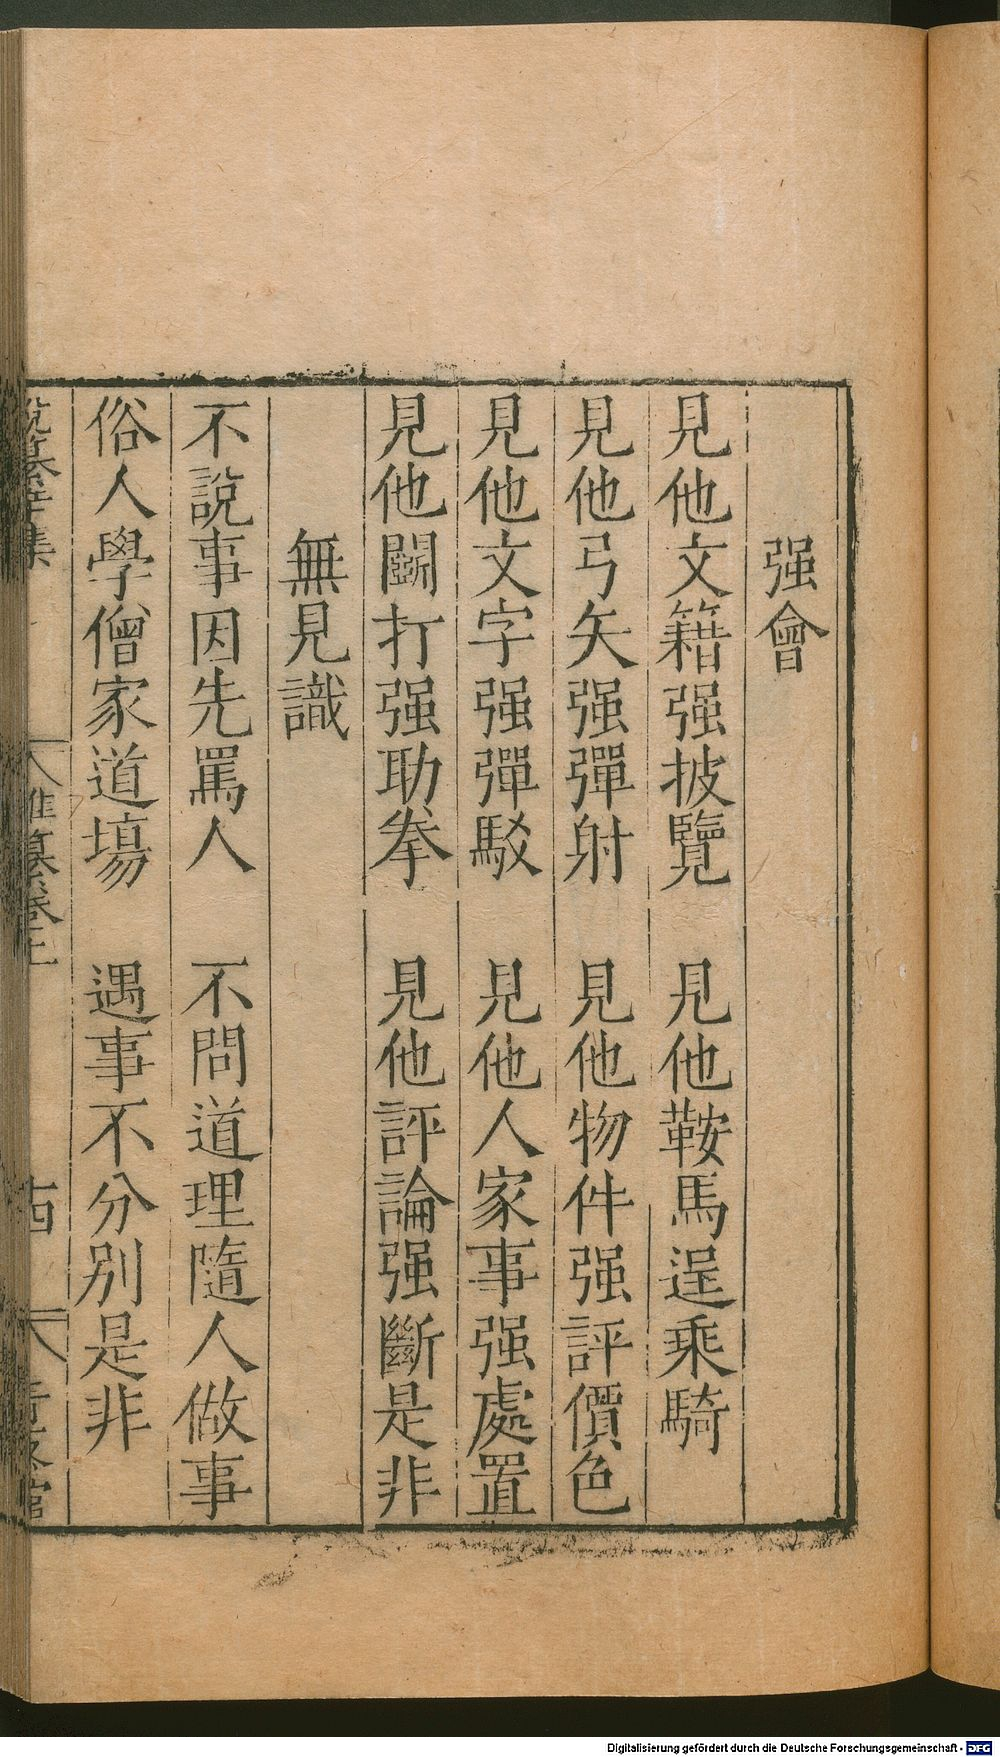 强會
見他文籍强披覽　見他鞍馬逞乘騎
見他弓矢强彈射　見他物件强評價色
見他文字强彈駁　見他人家事强處置
見他鬭打强助拳　見他評論强斷是非
無見識
不説事因先罵人　不問道理隨人做事
俗人學僧家道塲　遇事不分別是非
Digitalisierung gefördert durch die Deutsche Forschungsgemeinschaft - DFG